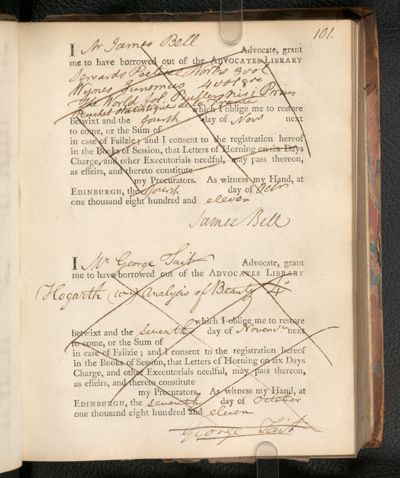 101.
I Mr James Bell Advocate, grant
me to have borrowed out of the ADVOCATES LIBRARY
Works 3 vol
Wynes Eunomus 4 vol 8vo
The World
betwixt and the fourth which I oblige me to restore
day of Novr next
to come, or the Sum of
in case of Failzie; and I consent to the registration hereof
in the Books of Session, that Letters of Horning on six Days
Charge, and other Executorials needful, may pass thereon,
as effeirs, and thereto constitute
my Procurators. As witness my Hand, at
EDINBURGH, the fourth day of Octr
one thousand eight hundred and eleven
James Bell
I Mr George Tait Advocate, grant
me to have borrowed out of the ADVOCATES LIBRARY
Hogarth (Wm) Analysis of Beauty 4o
which I oblige me to restore
betwixt and the seventh day of Novemr next
to come, or the Sum of
in case of Failzie; and I consent to the registration hereof
in the Books of Session, that Letters of Horning on six Days
Charge, and other Executorials needful, may pass thereon,
as effeirs, and thereto constitute
my Procurators. As witness my Hand, at
EDINBURGH, the seventh day of October
one thousand eight hundred and eleven
George Tait